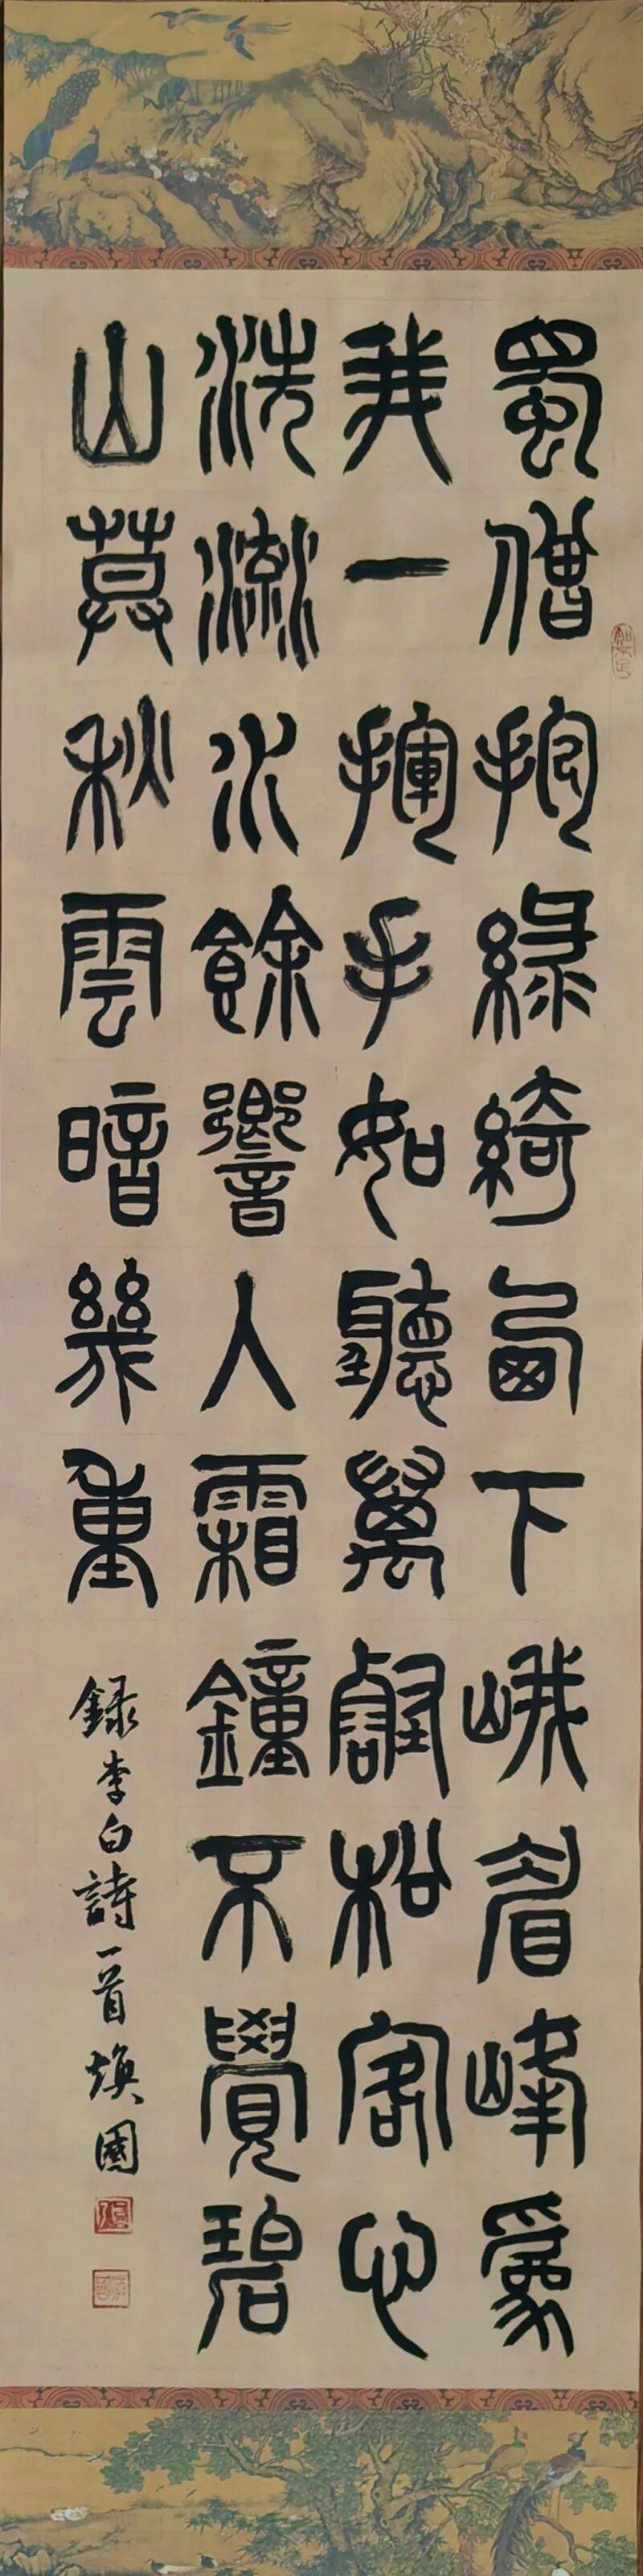 蜀僧抱綠綺西下峨眉峰爲
我一揮手如聽萬壑松客心
洗流水餘響入霜鐘不覺碧
山暮秋雲暗幾重
錄李白詩一首 煥國